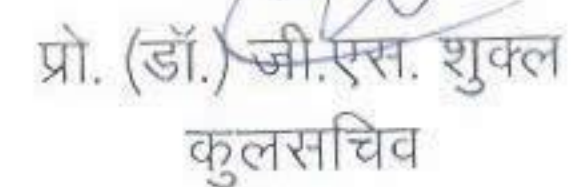 प्रो. (डॉ.) जी.एस. शुक्ल
कुलसचिव